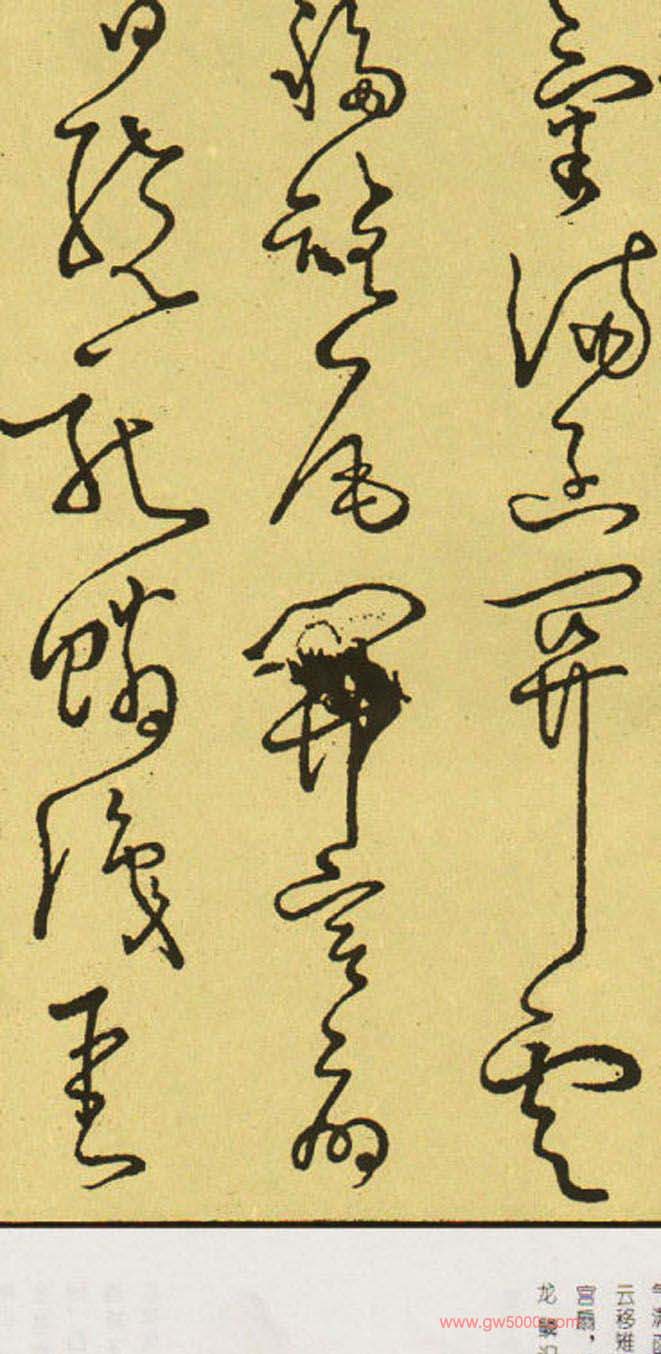 氣滿函關雲
移雉尾開宮扇
日繞龍鱗識聖
气满
云移雉
宫扇，
龙鳞
www.gw5000.com